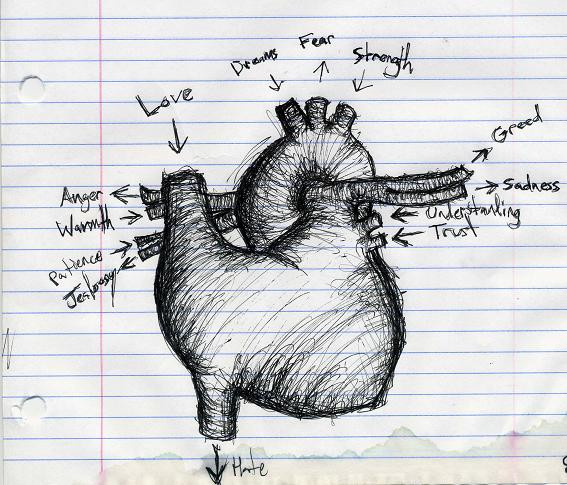 Fear
Dreams
Strength
Love
Greed
Anger
Sadness
Warmth
Understanding
Trust
Patience
Jealousy
Hate